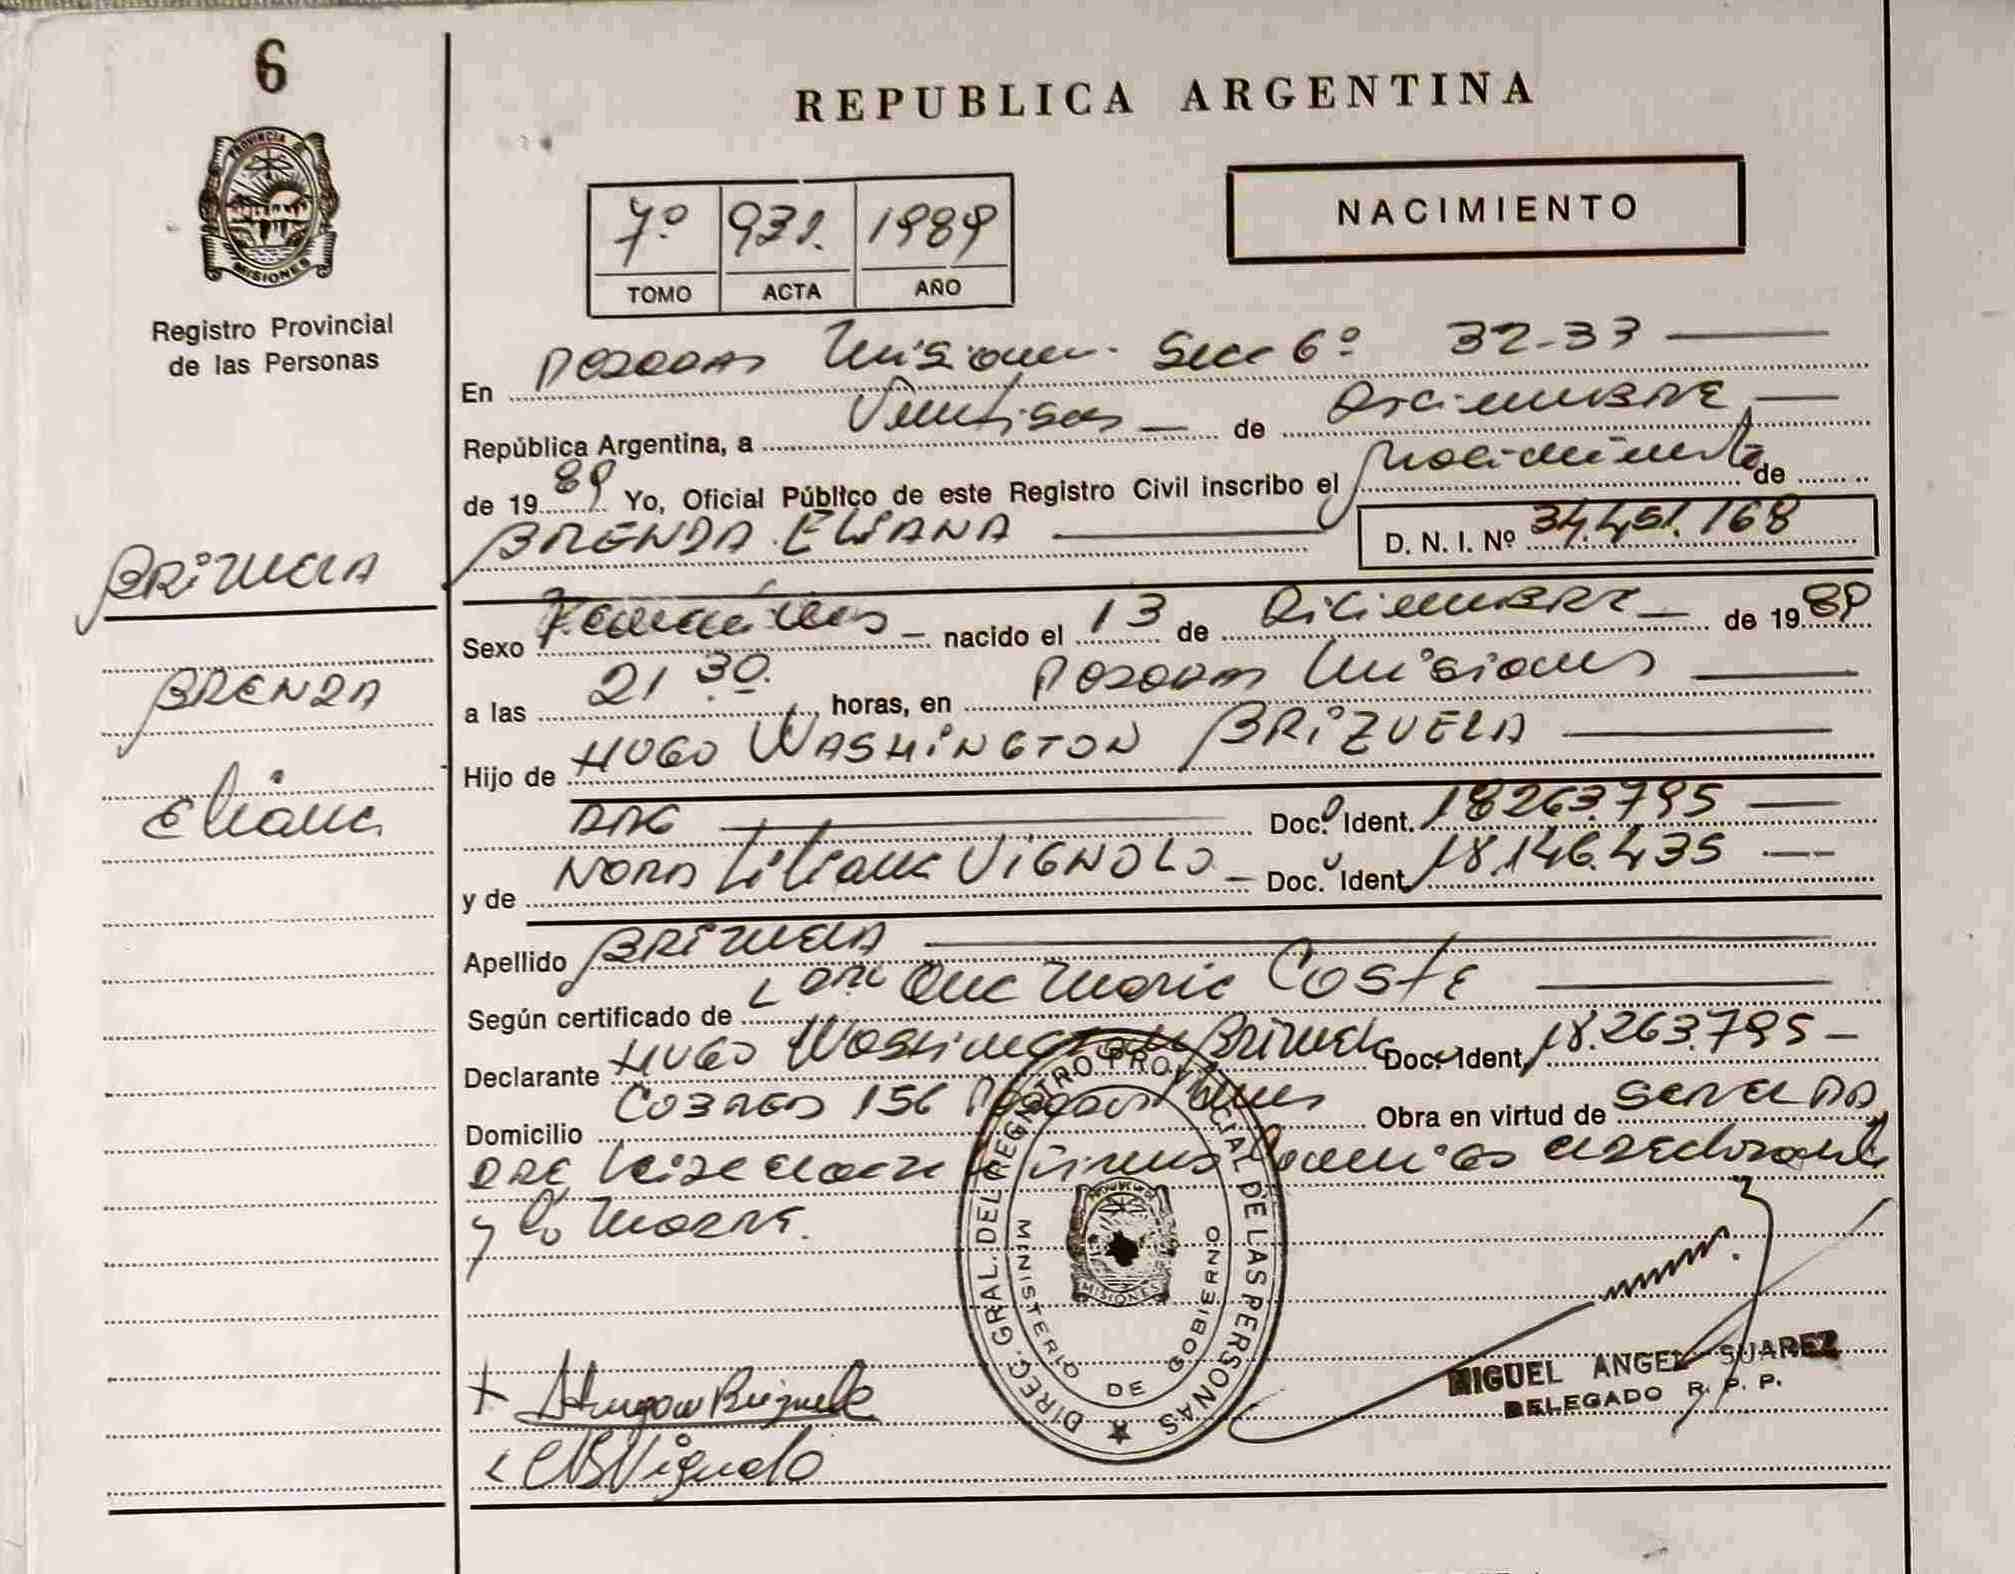 6
REPUBLICA ARGENTINA
PROVINCIA DE
MISIONES
Registro Provincial
de las Personas
NACIMIENTO
7º 931. 1989
TOMO ACTA AÑO
En Posadas Misiones. Secc 6º 32-33
República Argentina, a Ventisas de Diciembre
de 19 89 Yo, Oficial Público de este Registro Civil inscribo el Nacimiento de
BRENDA ELIANA D. N. I. Nº 34.451.168
BRIZUELA
BRENDA
Eliana
Sexo Femenino nacido el 13 de Diciembre de 19 89
a las 21 30. horas, en Posadas Misiones
Hijo de HUGO WASHINGTON BRIZUELA
ARG Doc. Ident. 18263.795
y de NORA Liliana VIGNOLO Doc. Ident. 18.146.435
Apellido BRIZUELA
Según certificado de Ana Maria COSTE
Declarante HUGO Washington Brizuela Doc. Ident. 18.263.795
Domicilio 156 Posadas Obra en virtud de
y la MADRE.
DIREC. GRAL. DEL REGISTRO PROVINCIAL DE LAS PERSONAS
MINISTERIO DE GOBIERNO
MISIONES
MIGUEL ANGEL SUAREZ
DELEGADO R. P. P.
Brizuela
Vignolo